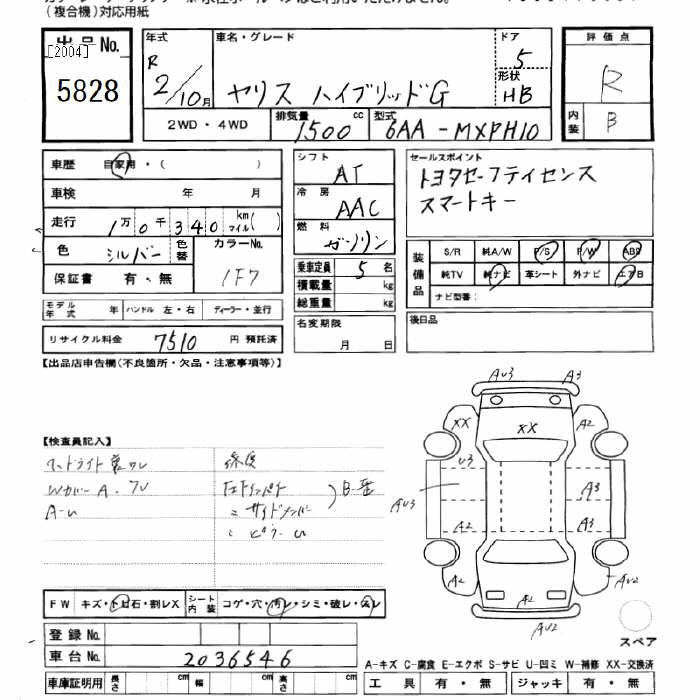 (複合機)対応用紙
出品No.
[2004]
5828
年式
R
2/10月
車名・グレード
ヤリス ハイブリッドG
ドア
5
形状
HB
2WD・4WD
排気量
1500 cc
型式
6AA-MXPH10
評価点
R
内装
B
車歴
自家用・( )
車検 年 月
走行 1万0千340 km マイル( )
色 シルバー
色替
カラーNo.
1F7
保証書 有・無
モデル年式 年
ハンドル 左・右
ディーラー・並行
リサイクル料金 7510 円 預託済
シフト
AT
冷房
AAC
燃料
ガソリン
乗車定員 5 名
積載量 kg
総重量 kg
名変期限
月 日
セールスポイント
トヨタセーフティセンス
スマートキー
装備品
S/R 純A/W P/S P/W ABS
純TV 純ナビ 革シート 外ナビ エアB
ナビ型番:
後日品
【出品店申告欄(不良箇所・欠品・注意事項等)】
【検査員記入】
修復
A-U
AU3
A3
XX
XX
A2
U3
AU3
A3
A2
A3
A2
AU2
AU2
スペア
FW キズ・トビ石・割レX
シート内装 コゲ・穴・汚レ・シミ・破レ・スレ
登録No.
車台No. 2036546
車庫証明用 長さ cm 幅 cm 高さ cm
A-キズ C-腐食 E-エクボ S-サビ U-凹ミ W-補修 XX-交換済
工具 有・無 ジャッキ 有・無